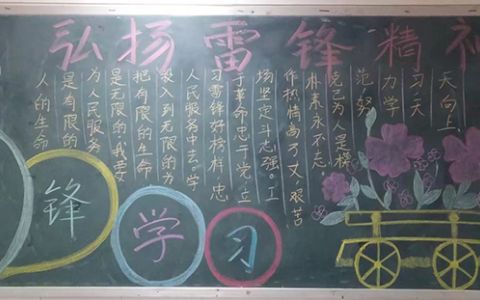 弘扬雷锋精神
人的生命
是有限的
为人民服务
是无限的,我要
把有限的生命
投入到无限的为
人民服务中去。学
习雷锋好榜样,忠
于革命忠于党,立
场坚定斗志强。工
作热情高万丈,艰苦
朴素永不忘
克己为人是模
范努
力学
习天
天向上
锋
学
习